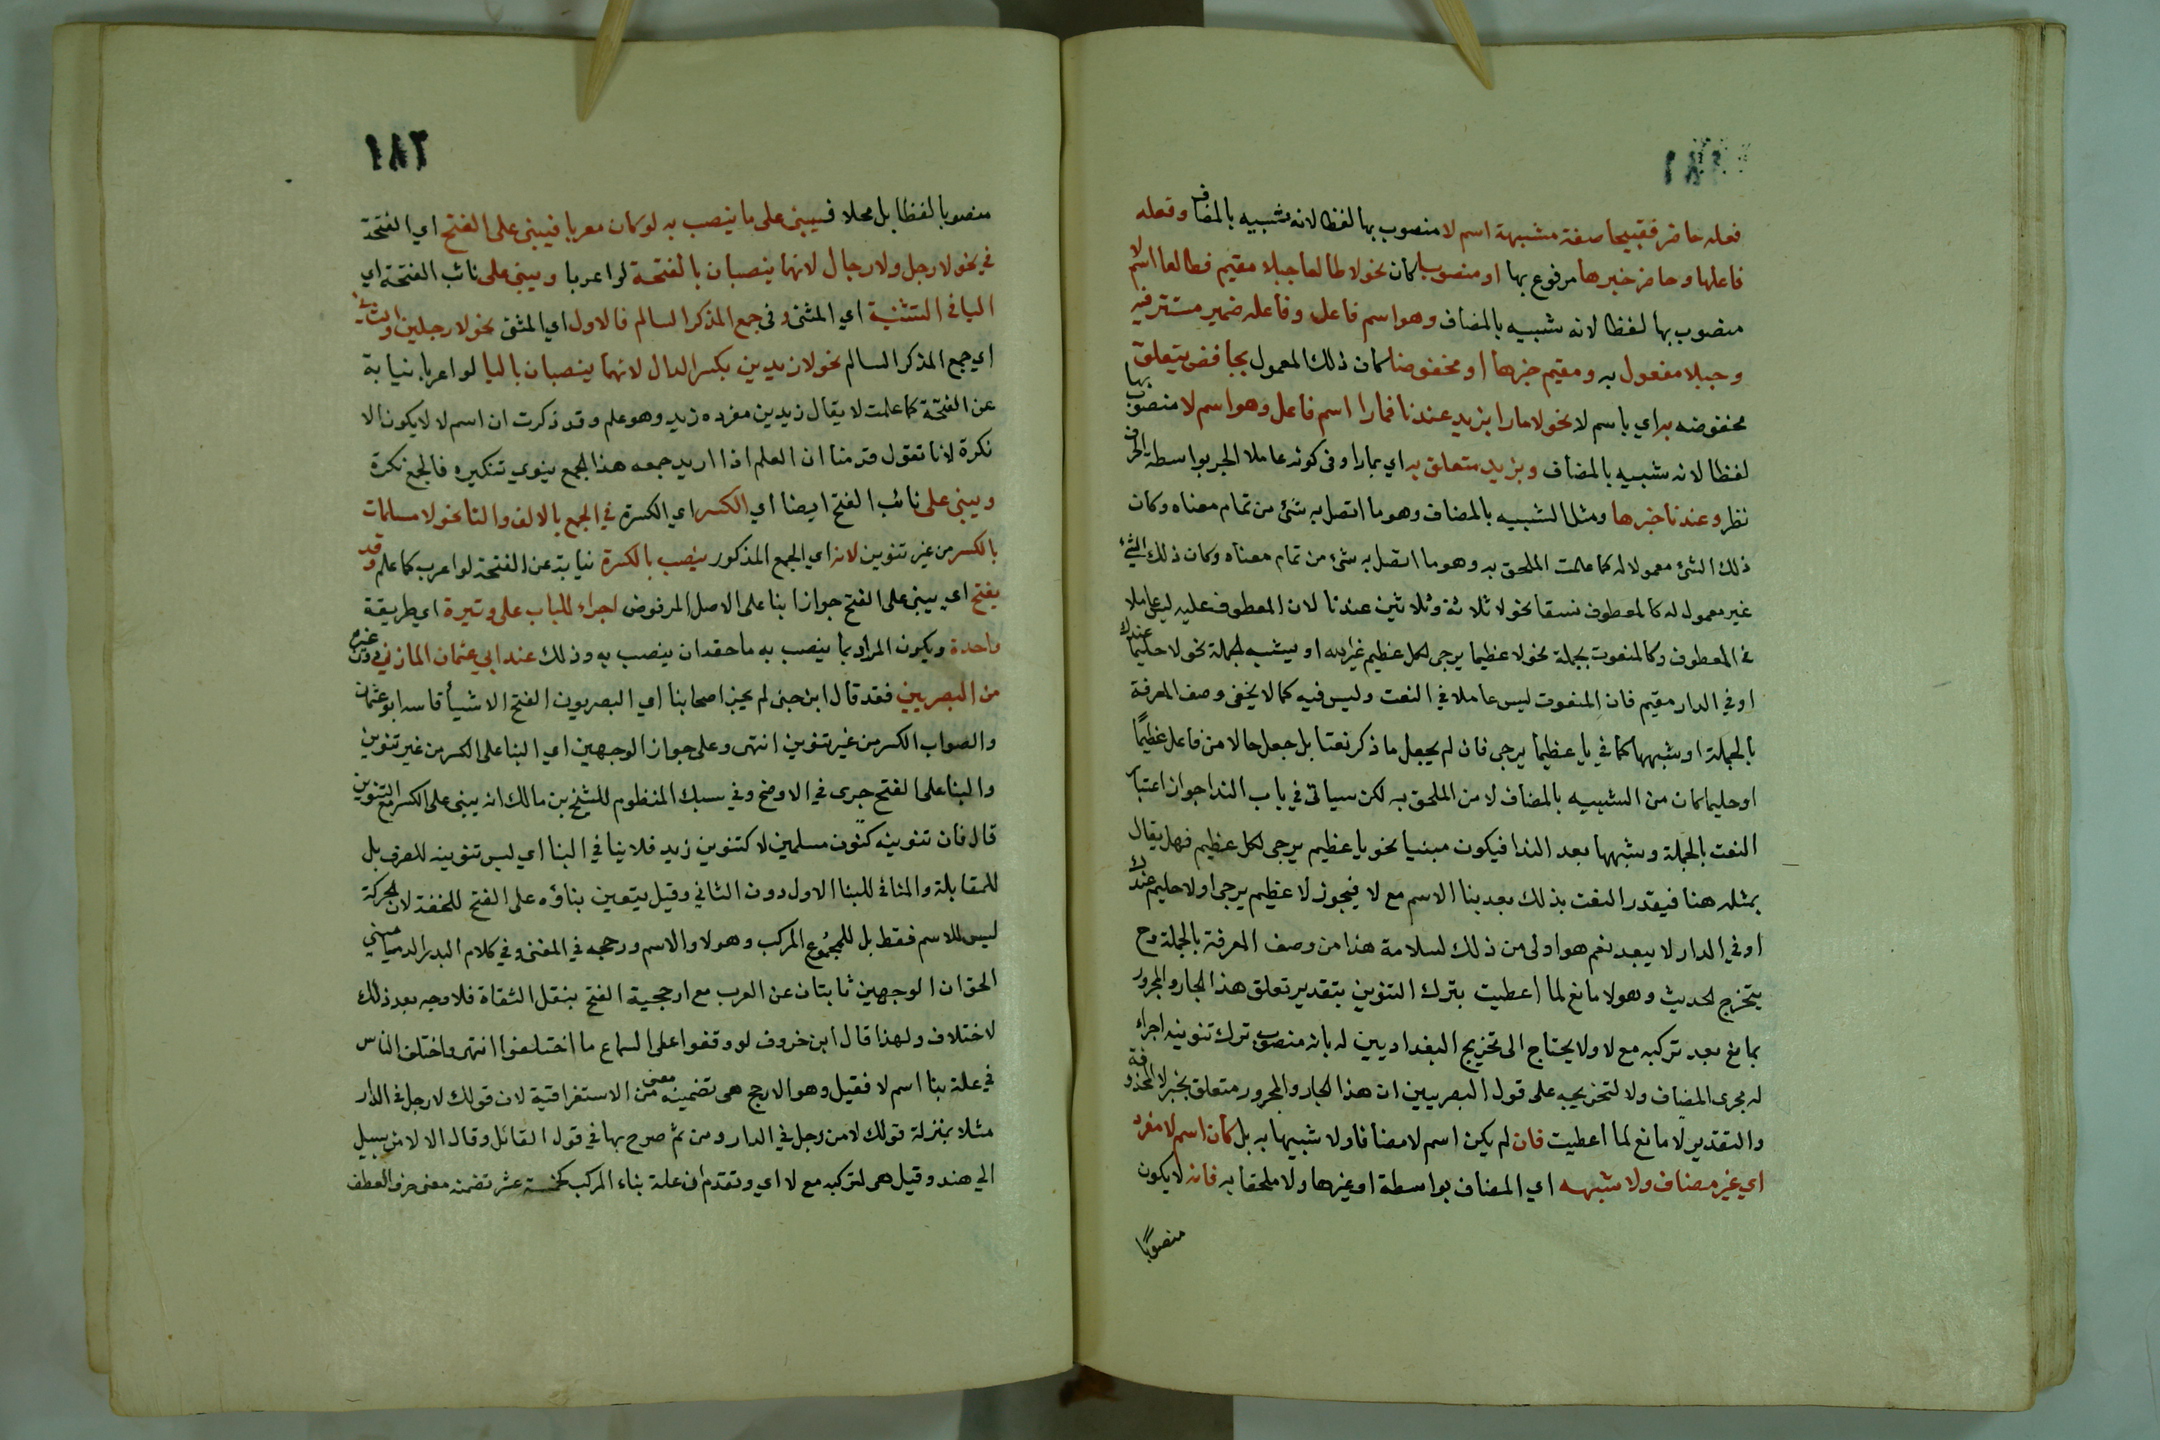 فعله حاضر فقبيحا صفة مشبهة اسم لا منصوب بها لفظا لانه شبيه بالمضاف وفعله
فاعلها وحاضر خبرها مرفوع بها او منصوبا كان نحو لا طالعا جبلا مقيم فطالعا اسم لا
منصوب بها لفظا لانه شبيه بالمضاف وهو اسم فاعل وفاعله ضمير مستتر فيه
وجبلا مفعول به ومقيم خبرها او مخفوضا كان ذلك المعمول بخافض يتعلق
مخفوضه به اي باسم لا نحو لا مارا بزيد عندنا فمارا اسم فاعل وهو اسم لا منصوب بها
لفظا لانه شبيه بالمضاف وبزيد متعلق به اي بمارا وفي كونه عاملا الجر بواسطة الحرف
نظر وعندنا خبرها ومثل الشبيه بالمضاف وهو ما اتصل به شئ من تمام معناه وكان
ذلك الشئ معمولا له كما علمت الملحق به وهو ما اتصل به شئ من تمام معناه وكان ذلك الشئ
غير معمول له كالمعطوف نسقا نحو لا ثلاثة وثلاثين عندنا لان المعطوف عليه ليس عاملا
في المعطوف وكالمنعوت بجملة نحو لا عظيما يرجى لكل عظيم غير الله او بشبه الجملة نحو لا حليما عندك
او في الدار مقيم فان المنعوت ليس عاملا في النعت وليس فيه كما لا يخفى وصف المعرفة
بالجملة او شبهها كما في يا عظيما يرجى فان لم يجعل ما ذكر نعتا بل جعل حالا من فاعل عظيمًا
او حليما كان من الشبيه بالمضاف لا من الملحق به لكن سياتي في باب الندا جواز اعتبار
النعت بالجملة وشبهها بعد الندا فيكون مبنيا نحو يا عظيم يرجى لكل عظيم فهل يقال
بمثله هنا فيقدر النعت بذلك بعد بنا الاسم مع لا فيجوز لا عظيم يرجى او لا حليم عندك
او في الدار لا يبعد نعم هو اولى من ذلك لسلامة هذا من وصف المعرفة بالجملة وح
يتخرج لحديث وهو لا مانع لما اعطيت بترك التنوين بتقدير تعلق هذا الجار والمجرور
بمانع بعد تركبه مع لا ولا يحتاج الى تخريج البغداديين له بانه منصوب ترك تنوينه اجراء
له مجرى المضاف ولا لتخريجه على قول البصريين ان هذا الجار والمجرور متعلق بخبر لا المحذوفة
والتقدير لا مانع لما اعطيت فان لم يكن اسم لا مضافا ولا شبيها به بل كان اسم لا مفرد
اي غير مضاف ولا شبهه اي المضاف بواسطة او غيرها ولا ملحقا به فانه لا يكون
منصوبًا
١٨٣
منصوبا لفظا بل محلا فيبنى على ما ينصب به لو كان معربا فيبنى على الفتح اي الفتحة
في نحو لا رجل ولا رجال لانهما ينصبان بالفتحة لو اعربا ويبنى على نائب الفتحة اي
اليا في التثنية اي المثنى وفي جمع المذكر السالم فالاول اي المثنى نحو لا رجلين والثاني
اي جمع المذكر السالم نحو لا زيدين بكسر الدال لانهما ينصبان باليا لو اعربا نيابة
عن الفتحة كما علمت لا يقال زيدين مفرده زيد وهو علم وقد ذكرت ان اسم لا لا يكون الا
نكرة لانا نقول قدمنا ان العلم اذا اريد جمعه هذا الجمع ينوي تنكيره فالجمع نكرة
ويبنى على نائب الفتح ايضا اي الكسر اي الكسرة في الجمع بالالف والتا نحو لا مسلمات
بالكسر من غير تنوين لانه اي الجمع المذكور ينصب بالكسرة نيابة عن الفتحة لو اعرب كما علم وقد
يفتح اي يبنى على الفتح جوازا بنا على الاصل المرفوض اجراء للباب على وتيرة اي طريقة
واحدة ويكون المراد بما ينصب به ما حقه ان ينصب به وذلك عند ابي عثمان المازني دون غيره
من البصريين فقد قال ابن جني لم يجز اصحابنا اي البصريون الفتح الا شيأ قاسه ابو عثمان
والصواب الكسر من غير تنوين انتهى وعلى جواز الوجهين اي البنا على الكسر من غير تنوين
والبنا على الفتح جرى في الاوضح وفي سبك المنظوم للشيخ بن مالك انه يبنى على الكسر مع التنوين
قال فان تنوينه كنون مسلمين لا كتنوين زيد فلا ينافي البنا اي ليس تنوينه للصرف بل
للمقابلة والمنافي للبنا الاول دون الثاني وقيل يتعين بناؤه على الفتح للخفة لان الحركة
ليس للاسم فقط بل للمجموع المركب وهو لا والاسم ورجحه في المغنى وفي كلام البدر الدماميني
الحق ان الوجهين ثابتان عن العرب مع ارجحية الفتح بنقل الثقاة فلا وجه بعد ذلك
لاختلاف ولهذا قال ابن خروف لو وقفوا على السماع ما اختلفوا انتهى واختلف الناس
في علة بنا اسم لا فقيل وهو الارجح هي تضمينه معنى من الاستغراقية لان قولك لا رجل في الدار
مثلا بمنزلة قولك لا من رجل في الدار ومن ثم صرح بها في قول القائل وقال الا لا من سبيل
الى هند وقيل هي لتركبه مع لا اي وتقدم ان علة بناء المركب كخمسة عشر تضمنه معنى حرف العطف